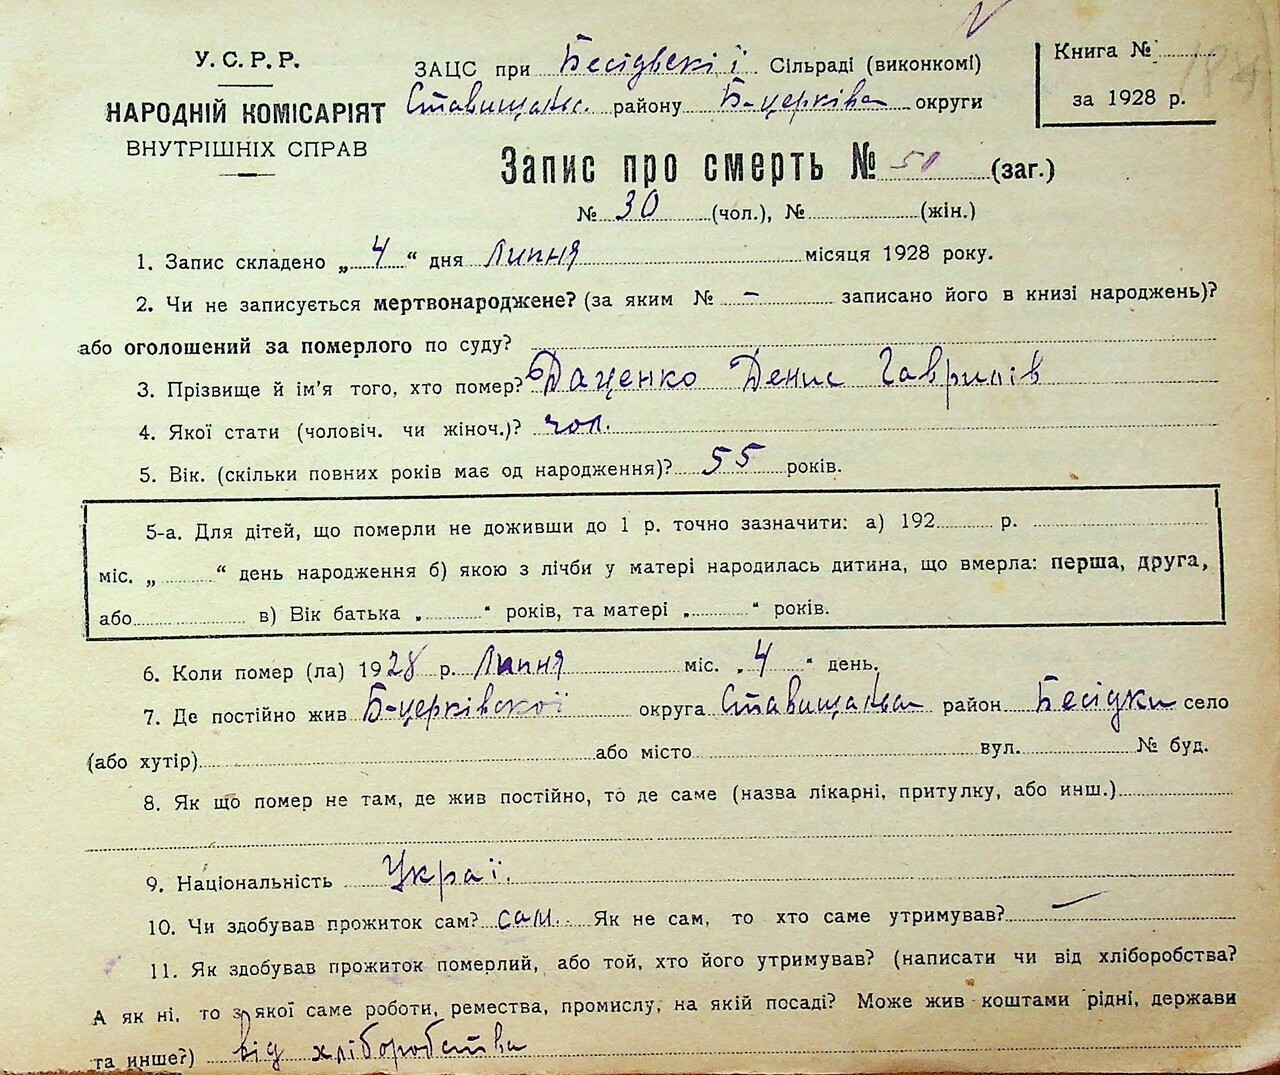 У. С. Р. Р.
НАРОДНІЙ КОМІСАРІЯТ
ВНУТРІШНІХ СПРАВ
ЗАЦС при Бесідвскії Сільраді (виконкомі)
Ставищанс. району Б-церківс округи
Книга №
за 1928 р.
Запис про смерть № 50 (заг.)
№ 30 (чол.), № (жін.)
1. Запис складено „4“ дня Липня місяця 1928 року.
2. Чи не записується мертвонароджене? (за яким № – записано його в книзі народжень)?
або оголошений за померлого по суду?
3. Прізвище й ім'я того, хто помер? Даценко Денис Гаврилів
4. Якої стати (чоловіч. чи жіноч.)? чол.
5. Вік. (скільки повних років має од народження)? 55 років.
5-а. Для дітей, що померли не доживши до 1 р. точно зазначити: а) 192 р.
міс. „ “ день народження б) якою з лічби у матері народилась дитина, що вмерла: перша, друга,
або в) Вік батька „ “ років, та матері „ “ років.
6. Коли помер (ла) 1928 р. Липня міс. „4“ день.
7. Де постійно жив Б-церківскої округа Ставищанськ район Бесідки село
(або хутір) або місто вул. № буд.
8. Як що помер не там, де жив постійно, то де саме (назва лікарні, притулку, або инш.)
9. Національність Украї.
10. Чи здобував прожиток сам? сам. Як не сам, то хто саме утримував? —
11. Як здобував прожиток померлий, або той, хто його утримував? (написати чи від хліборобства?
А як ні, то з якої саме роботи, ремества, промислу, на якій посаді? Може жив коштами рідні, держави
та инше?) від хліборобства